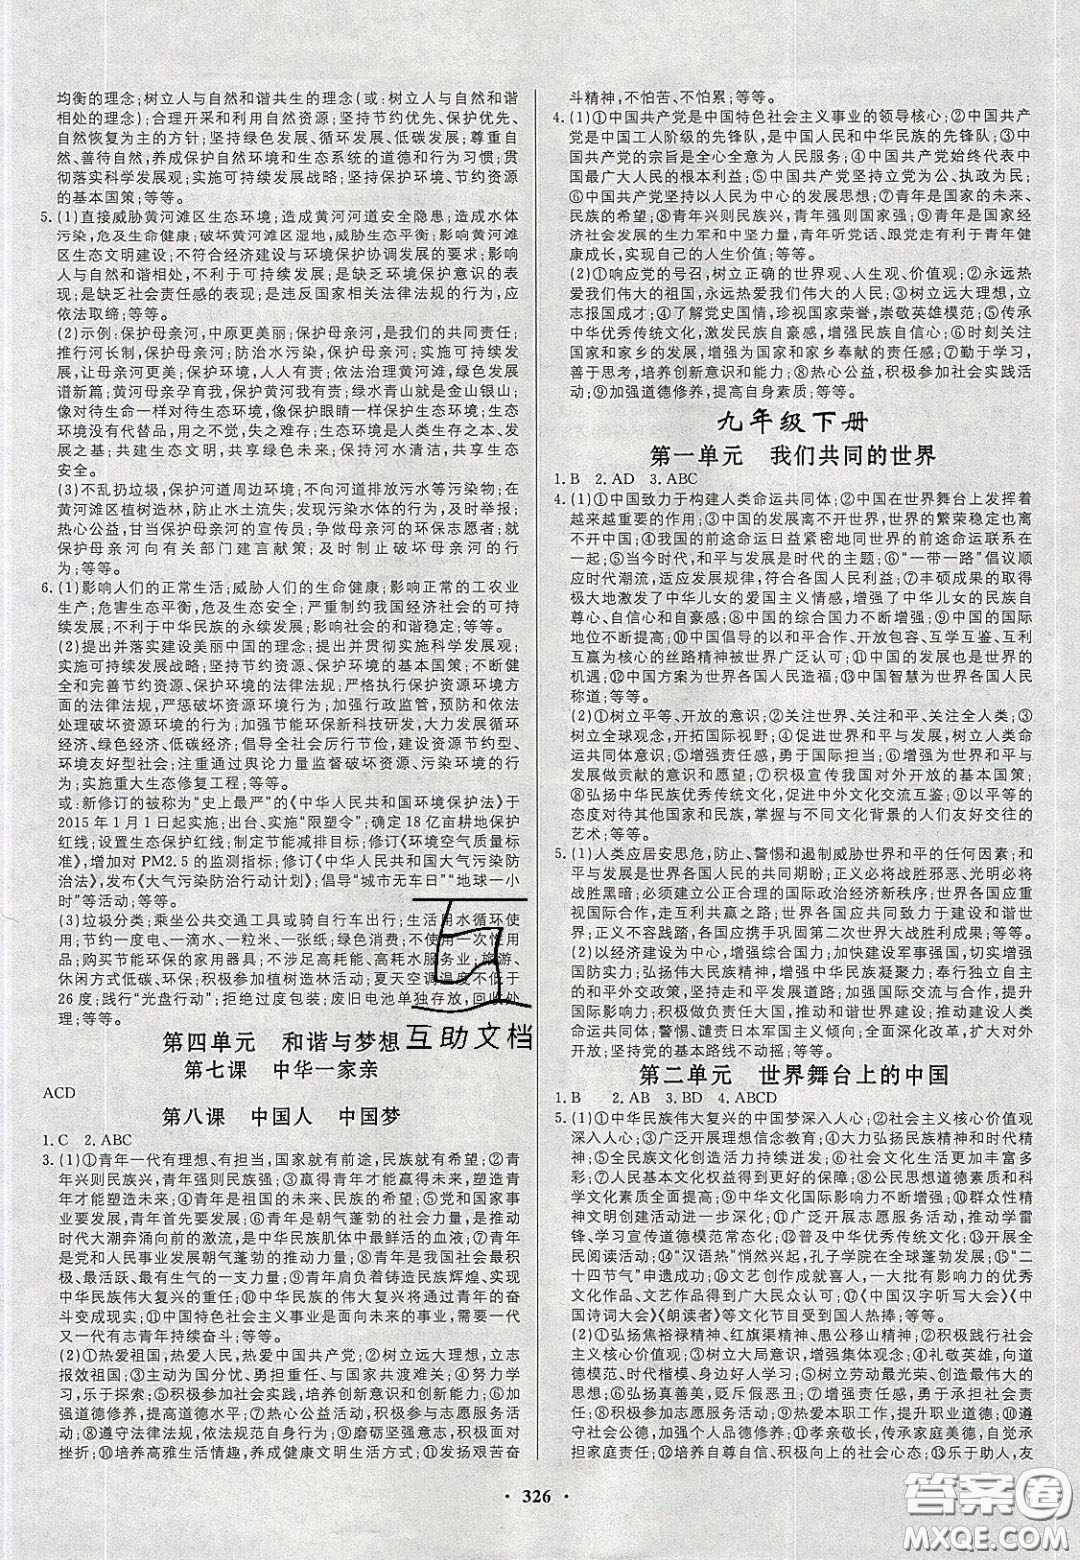 均衡的理念;树立人与自然和谐共生的理念(或:树立人与自然和谐
相处的理念);合理开采和利用自然资源;坚持节约优先、保护优先、
自然恢复为主的方针;坚持绿色发展、循环发展、低碳发展;尊重自
然、善待自然,养成保护自然环境和生态系统的道德和行为习惯;贯
彻落实科学发展观;坚持可持续发展战略;坚持保护环境、节约资源
的基本国策;等等。
5.(1)直接威胁黄河滩区生态环境;造成黄河河道安全隐患;造成水体
污染,危及生命健康;破坏黄河滩区湿地,威胁生态平衡;影响黄河滩
区生态文明建设;不符合经济建设与环境保护协调发展的要求;影响
人与自然和谐相处,不利于可持续发展;是缺乏环境保护意识的表
现;是缺乏社会责任感的表现;是违反国家相关法律法规的行为,应
依法取缔;等等。
(2)示例:保护母亲河,中原更美丽;保护母亲河,是我们的共同责任;
推行河长制,保护母亲河;防治水污染,保护母亲河;携手绿色发
展,让母亲河更美;保护环境,人人有责;依法治理黄河,绿色发展
谱新篇;黄河母亲孕育我,保护黄河我有责;绿水青山就是金山银山;
像对待生命一样对待生态环境,像保护眼睛一样保护生态环境;生态环境
没有代替品,用之不觉,失之难存;生态环境是人类生存之本、发
展之基;共建生态文明,共享绿色未来;保护生态环境,共享生态
安全。
(3)不乱扔垃圾,保护河道周边环境;不向河道排放污水等污染物;在
黄河滩区植树造林,防止水土流失;发现污染水体的行为,及时举报;
热心公益,甘当保护母亲河的宣传员;争做母亲河的环保志愿者;就
保护母亲河向有关部门建言献策;及时制止破坏母亲河的行
为;等等。
6.(1)影响人们的正常生活;威胁人们的生命健康;影响正常的工农业
生产;危害生态平衡,危及生态安全;严重制约我国经济社会的可持
续发展;不利于中华民族的永续发展;影响社会的和谐稳定;等等。
(2)提出并落实建设美丽中国的理念;提出并贯彻实施科学发展观;
实施可持续发展战略;坚持节约资源、保护环境的基本国策;不断健
全和完善节约资源、保护环境的法律法规;严格执行节约资源、保护环境
方面的法律法规,严惩破坏环境的行为;加强行政监管,预防和依法
处理破坏环境的行为;加强节能环保新科技研发,大力发展循环
经济、绿色经济、低碳经济;倡导全社会厉行节俭,建设资源节约型、
环境友好型社会;注重通过舆论力量监督破坏环境、污染环境的行
为;实施重大生态修复工程;等等。
或:新修订的被称为“史上最严”的《中华人民共和国环境保护法》于
2015年1月1日起实施;出台、实施“限塑令”;确定18亿亩耕地保护
红线;设置生态保护红线;制定节能减排目标;修订《环境空气质量标
准》,增加对PM2.5的监测指标;修订《中华人民共和国大气污染防
治法》,发布《大气污染防治行动计划》;倡导“城市无车日”“地球一小
时”等活动;等等。
(3)垃圾分类;乘坐公共交通工具或骑自行车出行;生活用水循环使
用;节约一度电、一滴水、一粒米、一张纸;绿色消费;不使用一次性用
品;购买节能环保的家用器具;不涉足高耗能、高耗水服务业;旅游、
休闲方式低碳、环保;积极参加植树造林活动;夏天空调温度不低于
26度;践行“光盘行动”;拒绝过度包装;废旧电池单独存放,回收处
理;等等。
第四单元 和谐与梦想
第七课 中华一家亲
ACD
第八课 中国人 中国梦
1.C 2.ABC
3.(1)①青年一代有理想、有担当,国家就有前途,民族就有希望;②青
年兴则民族兴,青年强则民族强;③赢得青年才能赢得未来,塑造青
年才能塑造未来;④青年是祖国的未来、民族的希望;⑤党和国家事
业要发展,青年首先要发展;⑥青年是朝气蓬勃的社会力量,是推动
时代大潮奔涌向前的激流,是中华民族肌体中最鲜活的血液;⑦青年
是党和人民事业发展朝气蓬勃的力量;⑧青年是我国社会最积
极、最有生气的一支力量;⑨青年肩负着铸造民族辉煌、实现
中华民族伟大复兴的重任;⑩中华民族的伟大复兴将在青年的奋
斗变成现实;⑪中国特色社会主义事业是面向未来的事业,需要一代
又一代有志青年持续奋斗;等等。
(2)①热爱祖国,热爱人民,热爱中国共产党;②树立远大理想,立志
报效祖国;③主动为国分忧,勇担重任,与国家共渡难关;④努力学
习,乐于探索;⑤积极参加社会实践,培养创新意识和创新能力;⑥加
强道德修养,提高道德水平;⑦热心公益,积极参与志愿服务活动;
⑧遵守法律法规,依法规范自身行为;⑨磨砺坚强意志,勇于面对
挫折;⑩培养高雅生活情趣,养成健康文明生活方式;⑪发扬艰苦奋
斗精神,不怕苦、不怕累;等等。
4.(1)①中国共产党是中国特色社会主义事业的领导核心;②中国共产
党是中国工人阶级的先锋队,是中国人民和中华民族的先锋队;③中
国共产党的宗旨是全心全意为人民服务;④中国共产党始终代表中
国最广大人民的根本利益;⑤中国共产党坚持立党为公、执政为民;
⑥中国共产党坚持以人民为中心的发展思想;⑦青年是国家的未来、
民族的希望;⑧青年兴则民族兴,青年强则国家强;⑨青年是国家经
济社会发展的生力军和中坚力量,青年听党话、跟党走有利于青年健
康成长,实现自己的人生价值;等等。
(2)①响应党的号召,树立正确的世界观、人生观、价值观;②永远热
爱我们伟大的祖国,永远热爱我们伟大的人民;③树立远大理想,立
志报国成才;④了解党史国情,珍视国家荣誉,崇敬英雄模范;⑤传承
中华优秀传统文化,激发民族自豪感,增强民族自信心;⑥时刻关注
国家和家乡的发展,增强为国家和家乡奉献的责任感;⑦勤于学习,
善于思考,培养创新意识和能力;⑧热心公益,积极参加社会实践活
动;⑨加强道德修养,提高自身素质;等等。
九年级下册
第一单元 我们共同的世界
1.B 2.AD 3.ABC
4.(1)①中国致力于构建人类命运共同体;②中国在世界舞台上发挥着
越来越重要的作用;③中国的发展离不开世界,世界的繁荣稳定也离
不开中国;④我国的前途命运日益紧密地同世界的前途命运联系在
一起;⑤当今时代,和平与发展是时代的主题;⑥“一带一路”倡议顺
应时代潮流,适应发展规律,符合各国人民利益;⑦丰硕成果的取得
极大地激发了中华儿女的爱国主义情感,增强了中华儿女的民族自
尊心、自信心、自豪感;⑧中国的综合国力不断增强;⑨中国的国际
地位不断提高;⑩中国倡导的以和平合作、开放包容、互学互鉴、互利
互赢为核心的丝路精神被世界广泛认可;⑪中国的发展是世界的
机遇;⑫中国方案为世界各国人民造福;⑬中国智慧为世界各国人民
称道;等等。
(2)①树立平等、开放的意识;②关注世界、关注和平、关注全人类;③
树立全球观念,开拓国际视野;④与世界各国人民友好相处,树立人类命
运共同体意识;⑤增强责任感,勇于国际担当;⑥增强为世界和平与
发展做贡献的意识和愿望;⑦积极宣传我国对外开放的基本国策;
⑧弘扬中华民族优秀传统文化,促进中外文化交流互鉴;⑨以平等的
态度对待其他国家和民族,掌握与不同文化背景的人们友好交往的
艺术;等等。
5.(1)人类应居安思危,防止、警惕和遏制威胁世界和平的任何因素;和
平与发展是世界各国人民的共同期盼;正义必将战胜邪恶、光明必将
战胜黑暗;世界各国应建立公正合理的国际政治经济新秩序;世界各国应
重视国际合作,走互利共赢之路;世界各国应共同致力于建设和谐世
界;正义不容践踏,各国应共同巩固第二次世界大战胜利成果;等等。
(2)以经济建设为中心,增强综合国力;加快建设军事强国,切实增强
国防实力;弘扬伟大民族精神,增强中华民族凝聚力;奉行独立自主
的和平外交政策,坚持走和平发展道路;推动建设和谐世界,推动建设人类
命运共同体;警惕、谴责日本军国主义倾向;全面深化改革,扩大对
外开放;坚持党的基本路线不动摇;等等。
第二单元 世界舞台上的中国
1.B 2.AB 3.BD 4.ABCD
5.(1)①中华民族伟大复兴的中国梦深入人心;②社会主义核心价值观
深入人心;③广泛开展理想信念教育;④大力弘扬民族精神和时代精
神;⑤全民族文化创造活力持续迸发;⑥社会文化生活更加丰富多
彩;⑦人民基本文化权益得到更好保障;⑧公民思想道德素质和科
学文化素质全面提高;⑨中华文化国际影响力不断增强;⑩群众性精
神文明创建活动进一步深化;⑪广泛开展志愿服务活动,推动学雷
锋、学习宣传道德模范常态化;⑫普及中华优秀传统文化;⑬开展全
民阅读活动;⑭“汉语热”悄然兴起,孔子学院在全球蓬勃发展;⑮“二
十四节气”申遗成功;⑯文艺创作成就喜人,一大批有影响力的优秀
文化作品、文艺作品得到广大民众认可;⑰《中国汉字听写大会》《中
国诗词大会》《朗读者》等文化节目受到国人热捧;等等。
(2)①弘扬焦裕禄精神、红旗渠精神、愚公移山精神;②积极践行社会
主义核心价值观;③增强集体观念;④礼敬英雄,向英雄模范
道德模范看齐,做身边好人;⑤树立劳动最光荣、创造最伟大的
思想;⑥弘扬真善美,贬斥假恶丑;⑦积极参加社会志愿服务活动;
⑧树立创新意识;⑨热爱本职工作,积极参加学习实践活动;⑩遵
守社会公德,加强个人品德修养;⑪孝亲敬长,传承家庭美德,自觉承
担家庭责任;⑫培养自尊自信、积极向上的社会心态;⑬乐于助人,友
· 326 ·
互助文档
答案圈
MXQE.COM